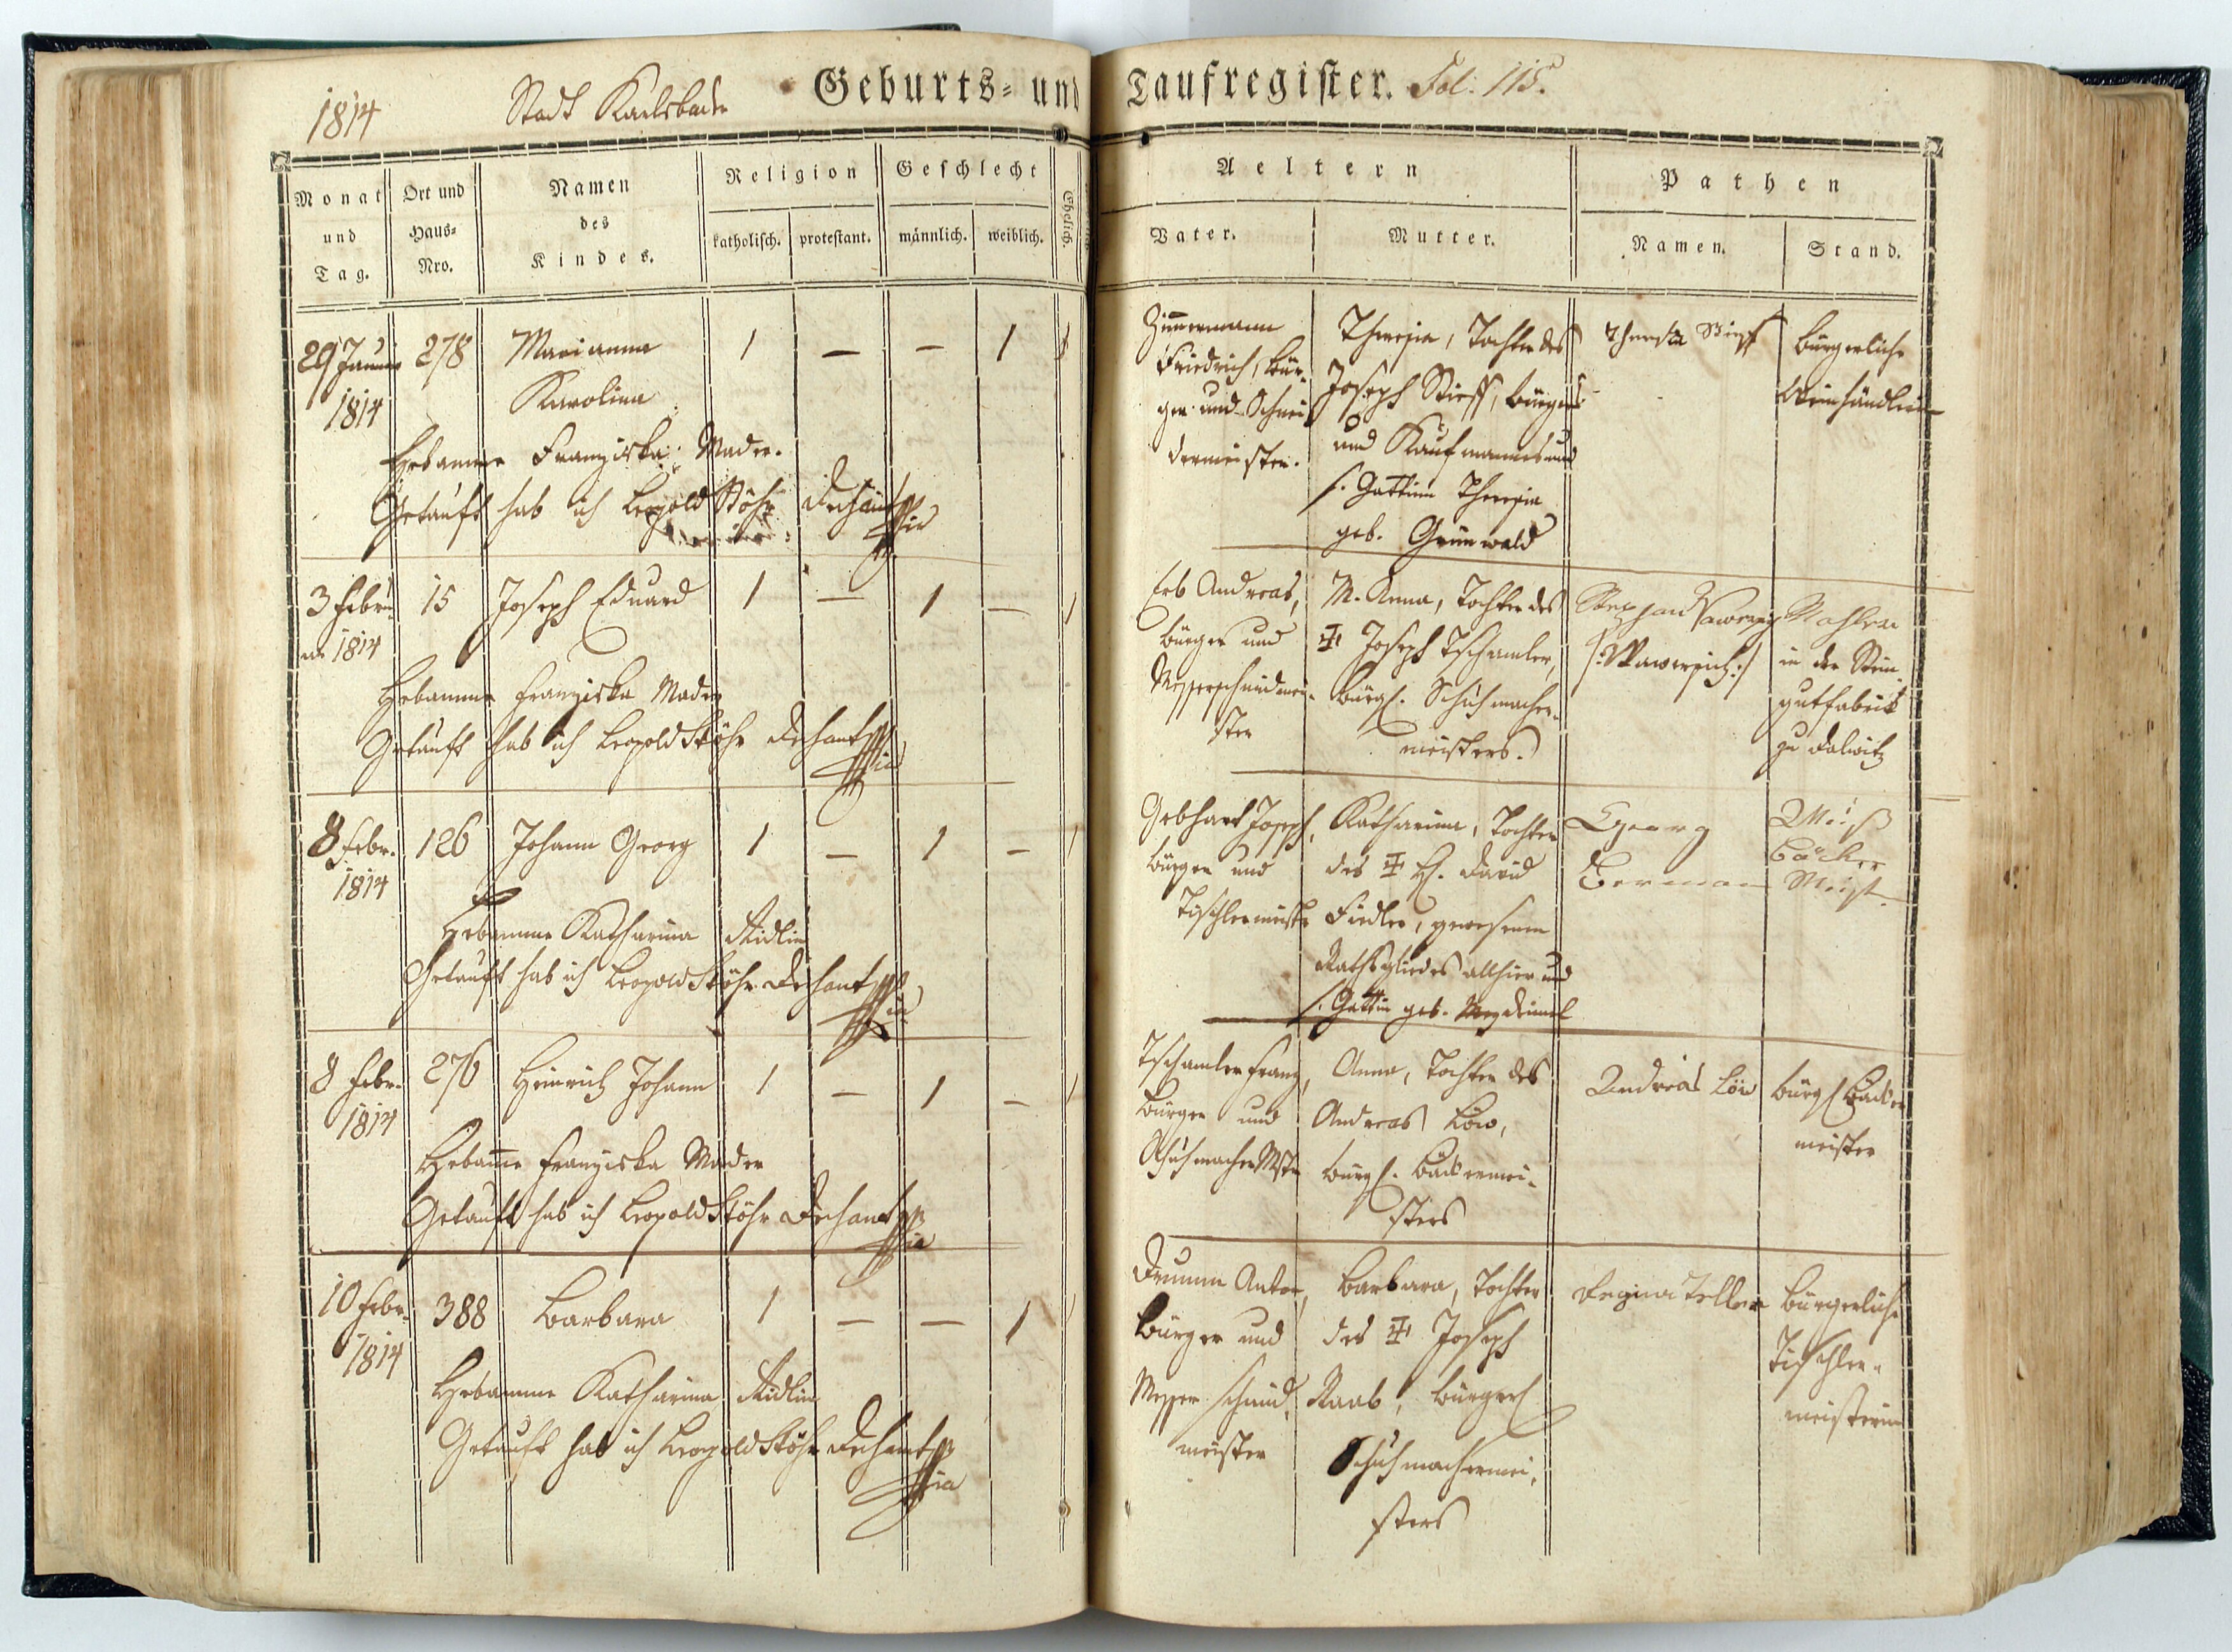 1814 Stadt Karlsbader Geburts- und Taufregister. Fol: 115.
Monat und Tag.
Ort und Haus-Nro.
Namen des Kindes.
Religion
katholisch. protestant.
Geschlecht
männlich. weiblich.
Ehelich.
Aeltern
Vater. Mutter.
Pathen
Namen. Stand.
29 Januar
1814
278
Marianna
Karolina
1 — — 1 1
Hebamme Franziska Mader.
Getauft hab ich Leopold Stöhr Dechant
Zimmermann
Friedrich, Bür-
ger und Schnei
dermeister.
Theresia, Tochter des
Joseph Stieff, bürgers
und Kaufmannes und
s. Gattinn Theresia
geb. Grünwald
Theresia Stieff
bürgerliche
Weinhändlerin
3 Febru
ar 1814
15
Joseph Eduard
1 — 1 — 1
Hebamme Franziska Mader
Getauft hab ich Leopold Stöhr Dechant
Erb Andreas,
bürger und
Messerschmidmei-
ster
M. Anna, Tochter des
Joseph Tschamler,
bürgl. Schuhmacher-
meisters.
/:Wawerzich:/
Mahler
in der Stein-
gutfabrik
zu Dalwitz
8 Febr.
1814
126
Johann Georg
1 — 1 — 1
Hebamme Katharina Aidlin
Getauft hab ich Leopold Stöhr Dechant
Gebhart Joseph,
bürger und
Tischlermeister
Katharina, Tochter
des H. David
Fiedler, gewesenen
Rathsgliedes allhier und
s. Gattin geb.
Georg
German
Weiß
bäcker
Meist.
8 Febr.
1814
276
Heinrich Johann
1 — 1 — 1
Hebamme Franziska Mader
Getauft hab ich Leopold Stöhr Dechant
Tschamler Franz,
bürger und
Schuhmacher Mstr
Anna, Tochter des
Andreas Löw,
bürgl. Bäckermei-
sters
Andreas Löw
bürgl Bäcker
meister
10 Febr.
1814
388
Barbara
1 — — 1 1
Hebamme Katharina Aidlin
Getauft hab ich Leopold Stöhr Dechant
Anton,
bürger und
Messerschmid-
meister
Barbara, Tochter
des Joseph
Raab, bürgerl
Schuhmachermei-
sters
Regina
bürgerliche
Tischler-
meisterin